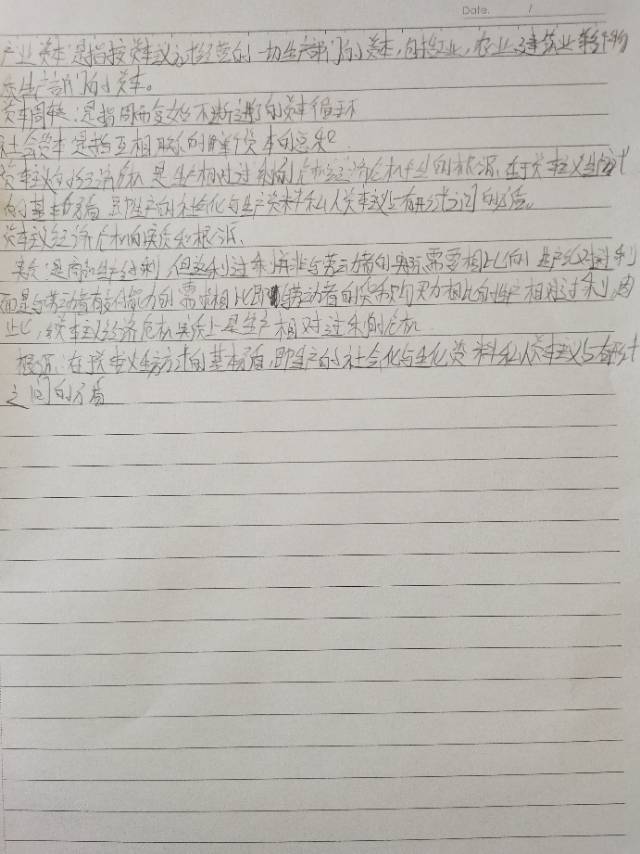 Date.
产业资本:是指按资本主义方式经营的一切生产部门的资本,包括工业,农业,建筑业等
生产部门的资本。
资本周转:是指周而复始不断进行的资本循环
社会资本是指互相联系的单个资本的总和
资本主义的经济危机是生产相对过剩的危机经济危机产生的根源,在于资本主义生产方式
的基本矛盾即生产的社会化与生产资料私人资本主义占有形式之间的矛盾。
资本主义经济危机的实质和根源.
实质:是商品生产过剩,但这种过剩并非与劳动者的实际需要相比的是绝对过剩
而是与劳动者有支付能力的需求相比即与劳动者的货币购买力相比的生产相对过剩,因
此,资本主义经济危机实质上是生产相对过剩的危机
根源:在资本主义生产方式的基本矛盾,即生产的社会化与生产资料私人资本主义占有形式
之间的矛盾